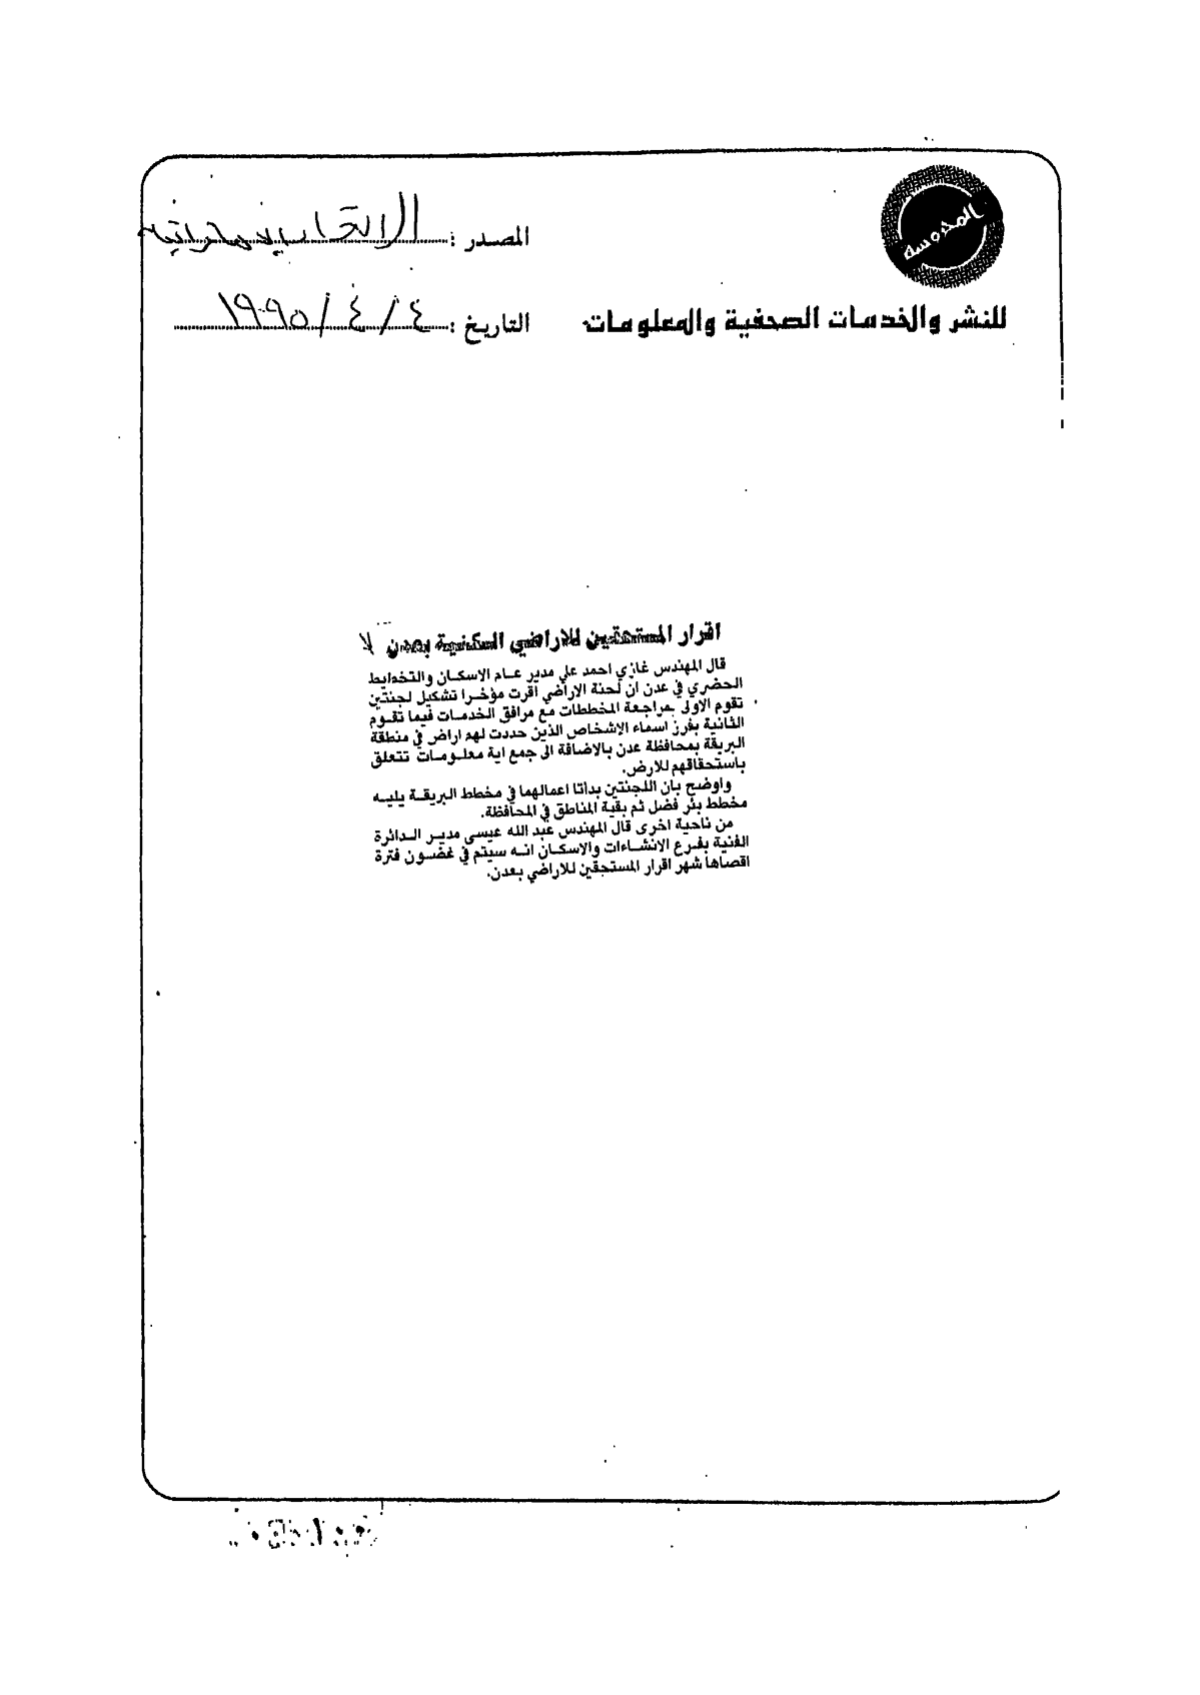 المحروسة
المصدر : الاتحاد
للنشر والخدمات الصحفية والمعلومات
التاريخ : ٤ / ٤ / ١٩٩٥
اقرار المستحقين للاراضي السكنية بعدن
قال المهندس غازي احمد علي مدير عـام الاسكان والتخطيط
الحضري في عدن ان لجنة الاراضي اقرت مؤخرا تشكيل لجنتين
تقوم الاولى بمراجعة المخططات مع مرافق الخدمـات فيما تقـوم
الثانية بفرز اسماء الاشخاص الذين حددت لهم اراض في منطقة
البريقة بمحافظة عدن بالاضافة الى جمع اية معلـومـات تتعلق
باستحقاقهم للارض.
واوضح بان اللجنتين بدأتا اعمالهما في مخطط البريقـة يليـه
مخطط بئر فضل ثم بقية المناطق في المحافظة.
من ناحية اخرى قال المهندس عبد الله عيسى مديـر الـدائرة
الفنية بفـرع الانشـاءات والاسكـان انـه سيتم في غضـون فترة
اقصاها شهر اقرار المستحقين للاراضي بعدن.